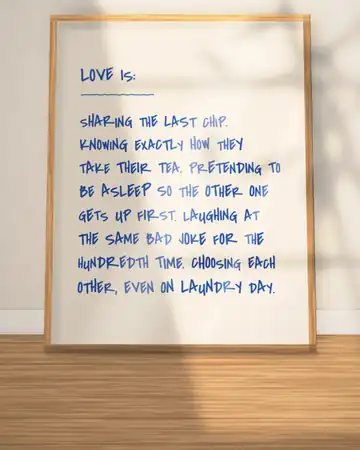 LOVE IS:
SHARING THE LAST CHIP.
KNOWING EXACTLY HOW THEY
TAKE THEIR TEA. PRETENDING TO
BE ASLEEP SO THE OTHER ONE
GETS UP FIRST. LAUGHING AT
THE SAME BAD JOKE FOR THE
HUNDREDTH TIME. CHOOSING EACH
OTHER, EVEN ON LAUNDRY DAY.